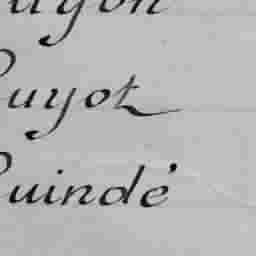 uyon
uyot
uindé